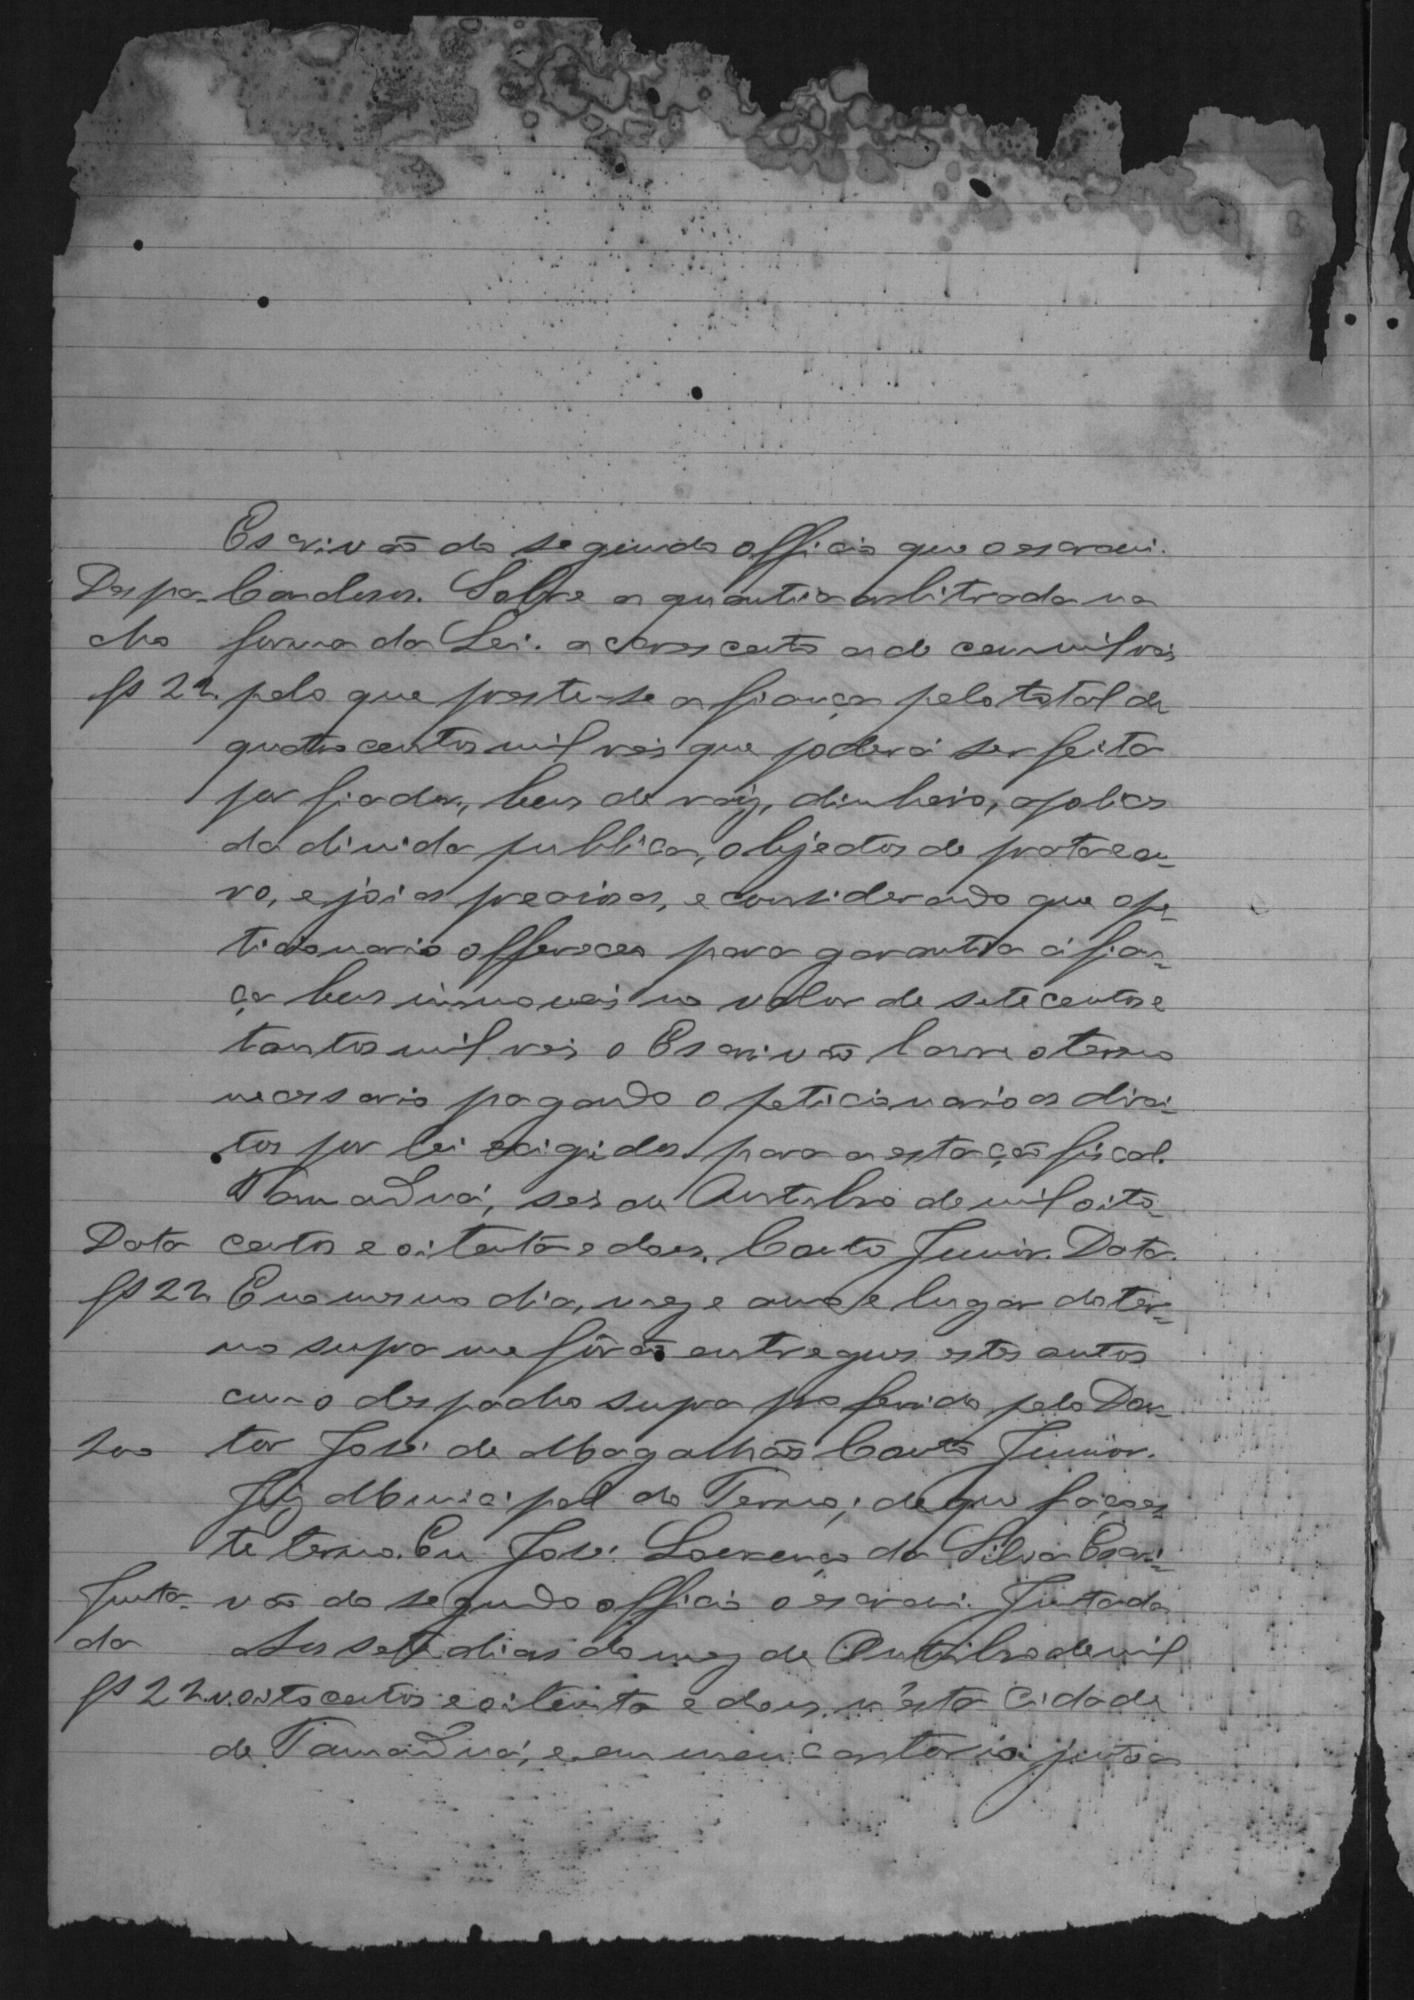 Escrivão do segundo officio que o escrevi.
Despa- Conclusos. Sobre a quantia arbitrada na
cho forma da Lei. accrescento a de cem mil reis
fs 22. pelo que preste-se a fiança pelo total de
quatro centos mil reis que poderá ser feita
por fiador, bens de raiz, dinheiro, apolices
da divida publica, objectos de prata e ou-
ro, e joias preciosas, e considerando que o pe-
ticionario offereceo para garantia á fian-
ça bens immoveis no valor de sete centos e
tantos mil reis o Escrivão lavre o termo
necessario pagando o peticionario os direi-
tos por lei exigidos para a estação fiscal.
Tamanduá, seis de Outubro de mil oito-
Data centos e oitenta e dous. Couto Junior. Data.
fs 22 E no mesmo dia, mez e anno e lugar do ter-
mo supra me forão entregues estes autos
com o despacho supra proferido pelo Dou-
tor José de Magalhães Couto Junior.
Juiz Municipal do Termo; de que faço es-
te termo. Eu José Lourenço da Silva Escri-
Junta- vão do segundo officio o escrevi. Juntada
da Aos sete dias do mez de Outubro de mil
fs 22 v. oito centos e oitenta e dous. n'esta Cidade
de Tamanduá, e em meu cartorio junto a